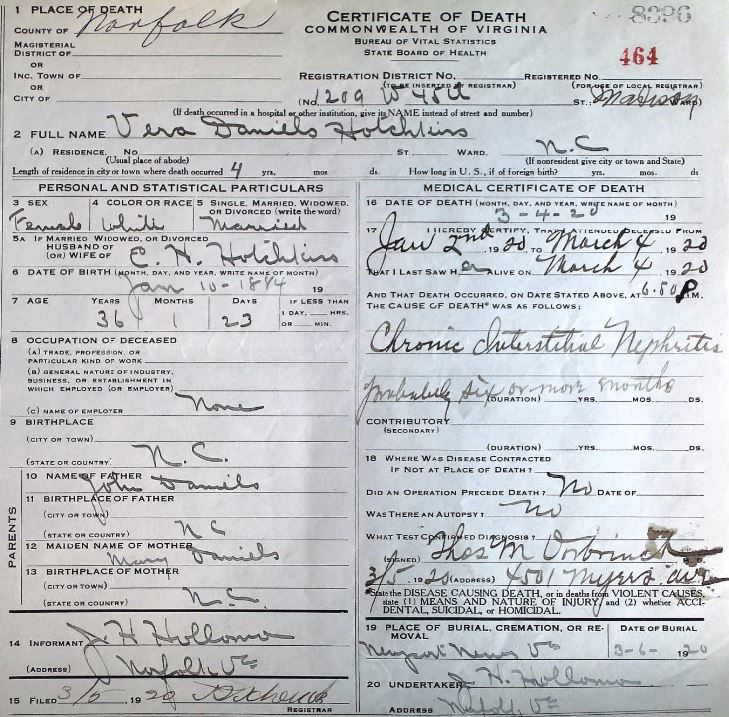 1 PLACE OF DEATH
COUNTY OF Norfolk
MAGISTERIAL
DISTRICT OF
OR
INC. TOWN OF
OR
CITY OF
CERTIFICATE OF DEATH
COMMONWEALTH OF VIRGINIA
BUREAU OF VITAL STATISTICS
STATE BOARD OF HEALTH
8396
464
REGISTRATION DISTRICT NO. REGISTERED NO.
(TO BE INSERTED BY REGISTRAR) (FOR USE OF LOCAL REGISTRAR)
(No. 1209 W 48th ST.; Madison WARD)
(If death occurred in a hospital or other institution, give its NAME instead of street and number)
2 FULL NAME Vera Daniels Hotchkins
(A) RESIDENCE. No. ST. WARD. N.C
(Usual place of abode) (If nonresident give city or town and State)
Length of residence in city or town where death occurred 4 yrs. mos ds. How long in U. S., if of foreign birth? yrs. mos. ds.
PERSONAL AND STATISTICAL PARTICULARS
3 SEX 4 COLOR OR RACE 5 SINGLE, MARRIED, WIDOWED,
OR DIVORCED (write the word)
Female White Married
5A IF MARRIED WIDOWED, OR DIVORCED
HUSBAND OF
(OR) WIFE OF E. H. Hotchkins
6 DATE OF BIRTH (MONTH, DAY, AND YEAR, WRITE NAME OF MONTH)
Jan 10-1884 19
7 AGE YEARS MONTHS DAYS IF LESS THAN
1 DAY, HRS.
OR MIN.
36 1 23
8 OCCUPATION OF DECEASED
(A) TRADE, PROFESSION, OR
PARTICULAR KIND OF WORK
(B) GENERAL NATURE OF INDUSTRY,
BUSINESS, OR ESTABLISHMENT IN
WHICH EMPLOYED (OR EMPLOYER)
(C) NAME OF EMPLOYER None
9 BIRTHPLACE
(CITY OR TOWN)
(STATE OR COUNTRY) N.C.
PARENTS
10 NAME OF FATHER John Daniels
11 BIRTHPLACE OF FATHER
(CITY OR TOWN)
(STATE OR COUNTRY) N C
12 MAIDEN NAME OF MOTHER
Mary Daniels
13 BIRTHPLACE OF MOTHER
(CITY OR TOWN)
(STATE OR COUNTRY) N.C.
14 INFORMANT J. H Hollomon
(ADDRESS) Norfolk Va
15 FILED 3/5, 1920
REGISTRAR
MEDICAL CERTIFICATE OF DEATH
16 DATE OF DEATH (MONTH, DAY, AND YEAR, WRITE NAME OF MONTH)
3-4-20 19
17 I HEREBY CERTIFY, THAT I ATTENDED DECEASED FROM
Jan 2nd, 1920, TO March 4, 1920
THAT I LAST SAW H ALIVE ON March 4, 1920
AND THAT DEATH OCCURRED, ON DATE STATED ABOVE, AT 6.50 P.M.
THE CAUSE OF DEATH* WAS AS FOLLOWS:
Chronic Interstitial Nephritis
probably six or more months
(DURATION) YRS. MOS. DS.
CONTRIBUTORY
(SECONDARY)
(DURATION) YRS. MOS. DS.
18 WHERE WAS DISEASE CONTRACTED
IF NOT AT PLACE OF DEATH?
DID AN OPERATION PRECEDE DEATH? No DATE OF
WAS THERE AN AUTOPSY? No
WHAT TEST CONFIRMED DIAGNOSIS?
(SIGNED) Thos M
3/5, 1920 (ADDRESS) 4501 Myers ave
State the DISEASE CAUSING DEATH, or in deaths from VIOLENT CAUSES,
state (1) MEANS AND NATURE OF INJURY, and (2) whether ACCI-
DENTAL, SUICIDAL, or HOMICIDAL.
19 PLACE OF BURIAL, CREMATION, OR RE-
MOVAL
DATE OF BURIAL
Newport News Va 3-6- 1920
20 UNDERTAKER J. H. Hollomon
ADDRESS Norfolk Va